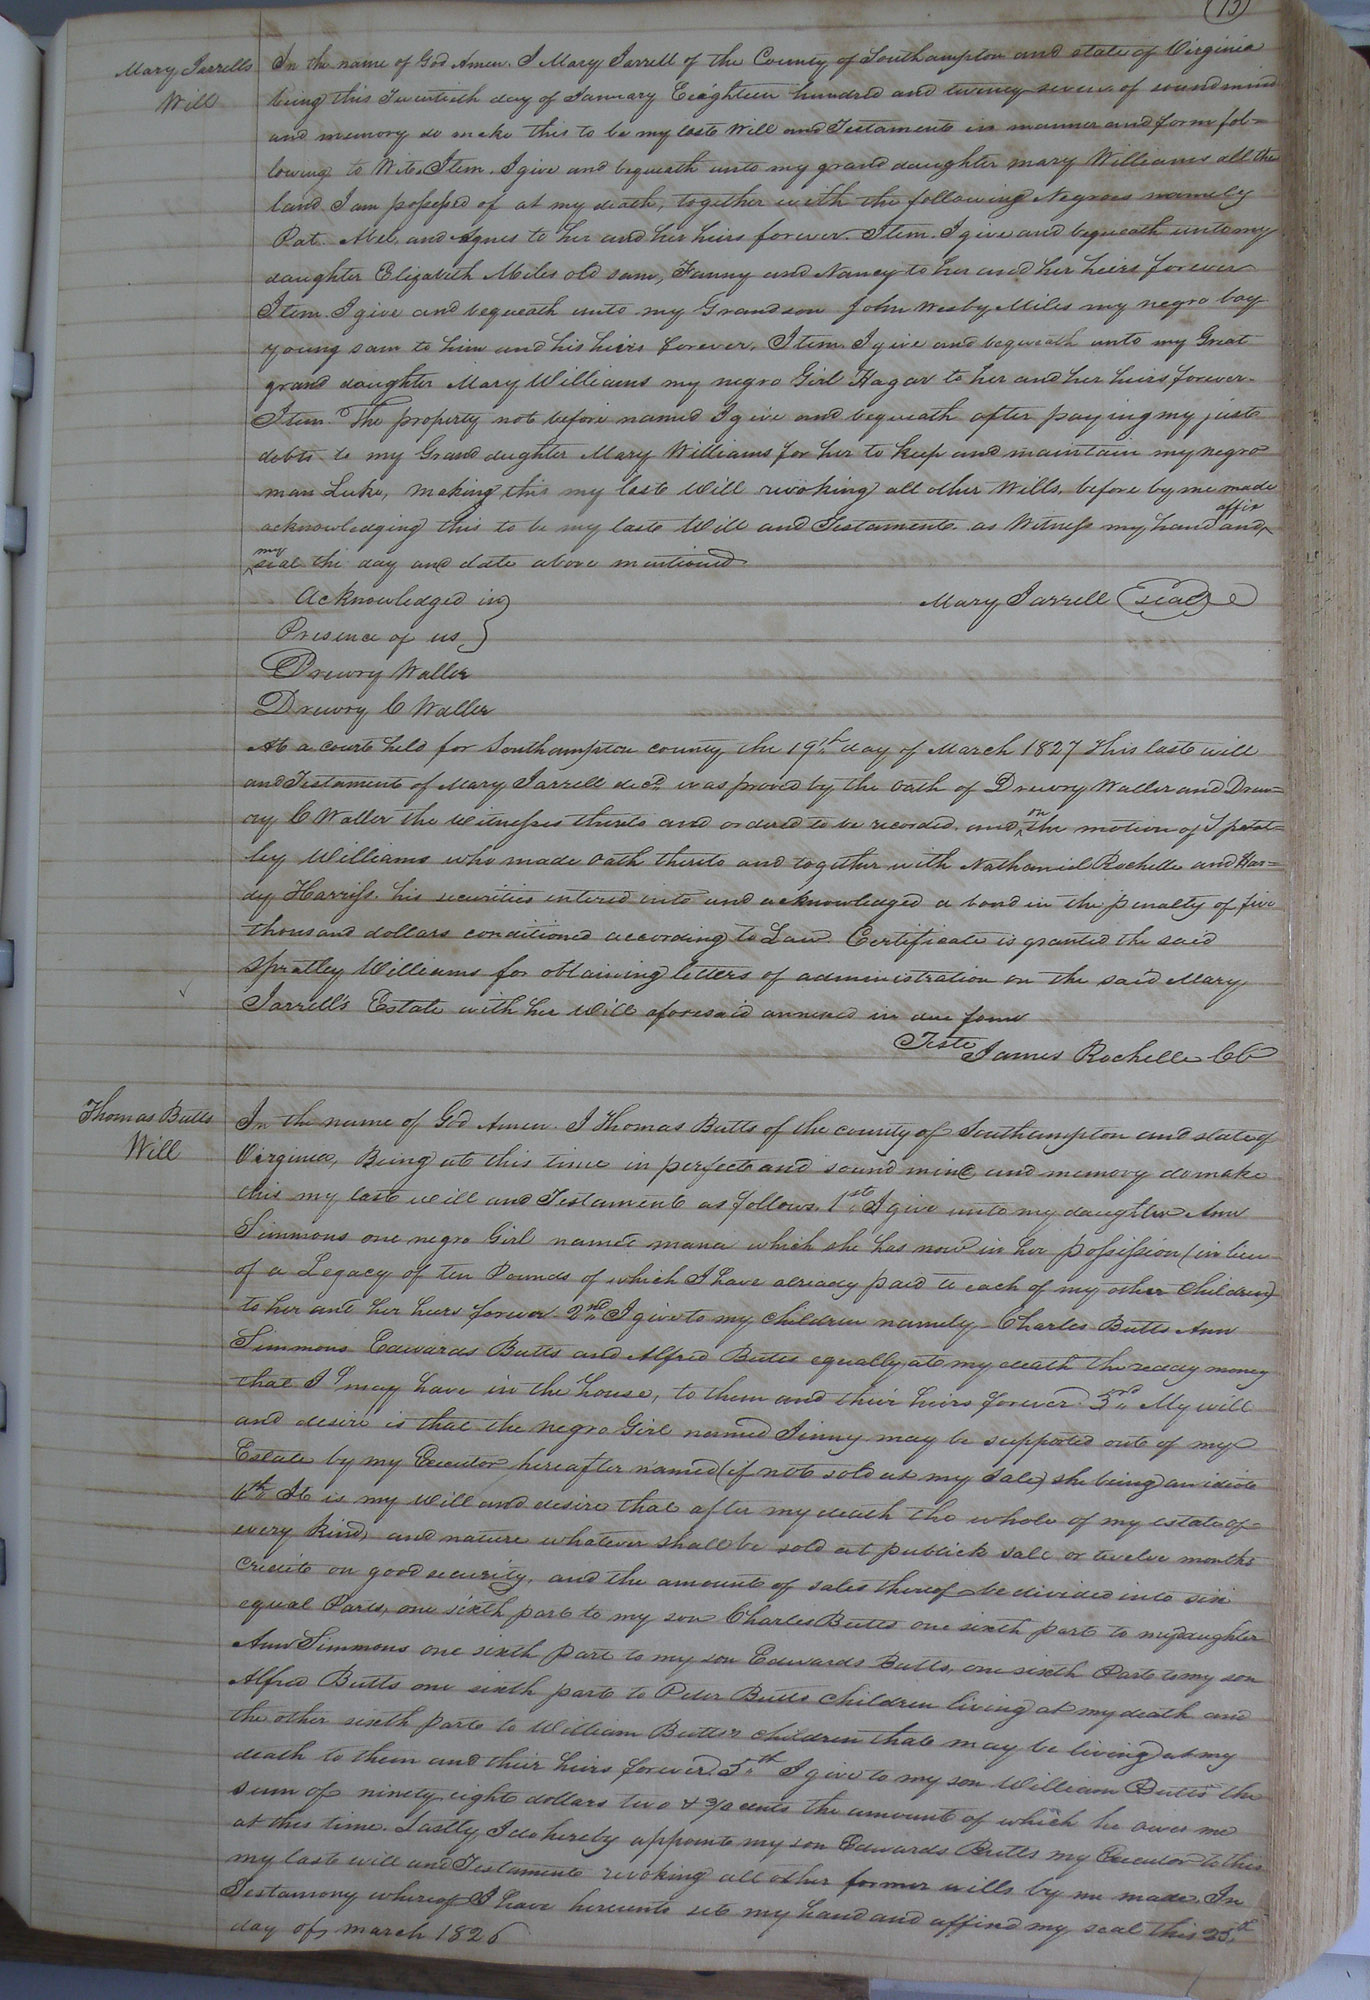 (13)
Mary Jarrells
Will
In the name of God Amen. I Mary Jarrell of the County of Southampton and state of Virginia
being this Twentieth day of January Eeighteen hundred and twenty seven of sound mind
and memory do make this to be my last Will and Testament in manner and form fol=
lowing to Wit. Item. I give and bequeath unto my grand daughter mary Williams all the
land I am possessed of at my death, together with the following Negroes namely
Pat. Abel. and Agnes to her and her heirs forever. Item. I give and bequeath unto my
daughter Elizabeth Miles old sam, Fanny and Nancy to her and her heirs forever
Item. I give and bequeath unto my Grandson John Wesby Miles my negro boy
young sam to him and his heirs forever. Item. I give and bequeath unto my Great
grand daughter Mary Williams my negro Girl Hagar to her and her heirs forever.
Item. The property not before named I give and bequeath after paying my just
debts to my Grand daughter Mary Williams for her to keep and maintain my negro
man Luke, making this my last Will revoking all other Wills, before by me made
acknowledging this to be my last Will and Testament. as Witness my hand and affix
my seal the day and date above mentioned
Acknowledged in }
Mary Jarrell (seal)
Presence of us }
Drewry Waller
Drewry C Waller
At a court held for Southampton county the 19th day of March 1827 This last will
and Testament of Mary Jarrell decd. was proved by the oath of Drewry Waller and Drew=
ry C Waller the Witnesses thereto and ordered to be recorded. and on the motion of Spratt=
ley Williams who made oath thereto and together with Nathaniel Rochelle and Har=
dy Harriss his securities entered into and acknowledged a bond in the penalty of five
thousand dollars conditioned according to Law. Certificate is granted the said
Spratley Williams for obtaining letters of administration on the said Mary
Jarrell's Estate with her Will aforesaid annexed in due form
Teste
James Rochelle CC
Thomas Butts
Will
In the name of God Amen. I Thomas Butts of the county of Southampton and state of
Virginia, Being at this time in perfect and sound mind and memory do make
this my last will and Testament as follows. 1st. I give unto my daughter Ann
Simmons one negro Girl named which she has now in her possission (in lieu
of a Legacy of ten Pounds of which I have already paid to each of my other Children)
to her and her heirs forever. 2nd. I give to my children namely Charles Butts Ann
Simmons Edwards Butts and Alfred Butts equally at my death the ready money
that I may have in the house, to them and their heirs forever. 3rd. My will
and desire is that the negro Girl named Jinny may be supported out of my
Estate by my Executor hereafter named (if not sold at my sale) she being an idiote
4th. It is my will and desire that after my death the whole of my estate of
every kind, and nature whatever shall be sold at publick sale or twelve months
credit on good security, and the amount of sales thereof be divided into six
equal Parts, one sixth part to my son Charles Butts one sixth part to my daughter
Ann Simmons one sixth part to my son Edwards Butts, one sixth Part to my son
Alfred Butts one sixth part to Peter Butts children living at my death and
the other sixth part to William Butts's children that may be living at my
death to them and their heirs forever. 5th. I give to my son William Butts the
sum of ninety eight dollars two & cents the amount of which he owes me
at this time. Lastly I do hereby appoint my son Edwards Butts my Executor to this
my last will and Testament revoking all other former wills by me made. In
Testamony whereof I have hereunto set my hand and affixed my seal this 25th
day of march 1826